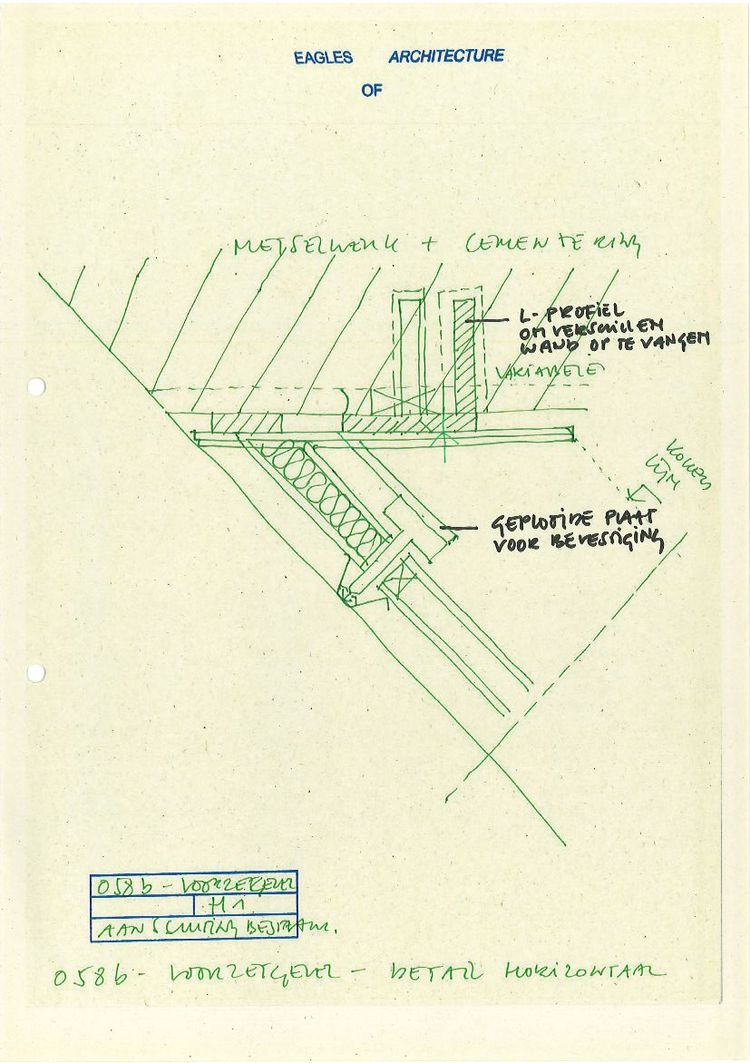 EAGLES ARCHITECTURE
OF
METSELWERK + CEMENTERING
L-PROFIEL
OM VERSCHILLEN
WAND OP TE VANGEN
VARIABELE
KOKER
LIJM
GEPLOOIDE PLAAT
VOOR BEVESTIGING
058b - VOORZETGEVEL
H1
AANSLUITING BESTAAND.
058b - VOORZETGEVEL - DETAIL HORIZONTAAL